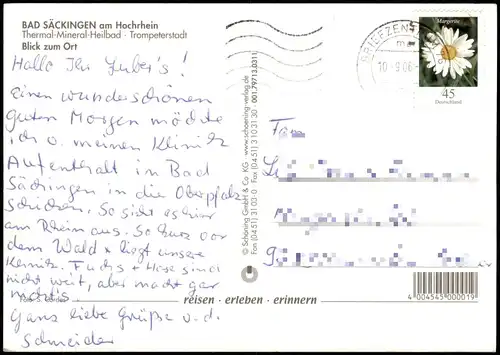 BAD SÄCKINGEN am Hochrhein
Thermal-Mineral-Heilbad · Trompeterstadt
Blick zum Ort
Hallo Ihr Huber's!
Einen wunderschönen
guten Morgen möchte
ich v. meinen Klinik
Aufenthalt in Bad
Säckingen in die Oberpfalz
schicken. So sieht es hier
am Rhein aus. So kurz vor
dem Wald + liegt unsere
Klinik. Fuchs + Hase sind
nicht weit, aber macht gar
nichts
Ganz liebe Grüße v. d.
Schneider
reisen · erleben · erinnern
© Schöning GmbH & Co. KG · www.schoening-verlag.de
Fon (04 51) 31 03-0 Fax (04 51) 3 10 31 30 · 001.79713.0311
BRIEFZENT
10.-9.06
Margerite
45
Deutschland
Fam
4 004545 000019